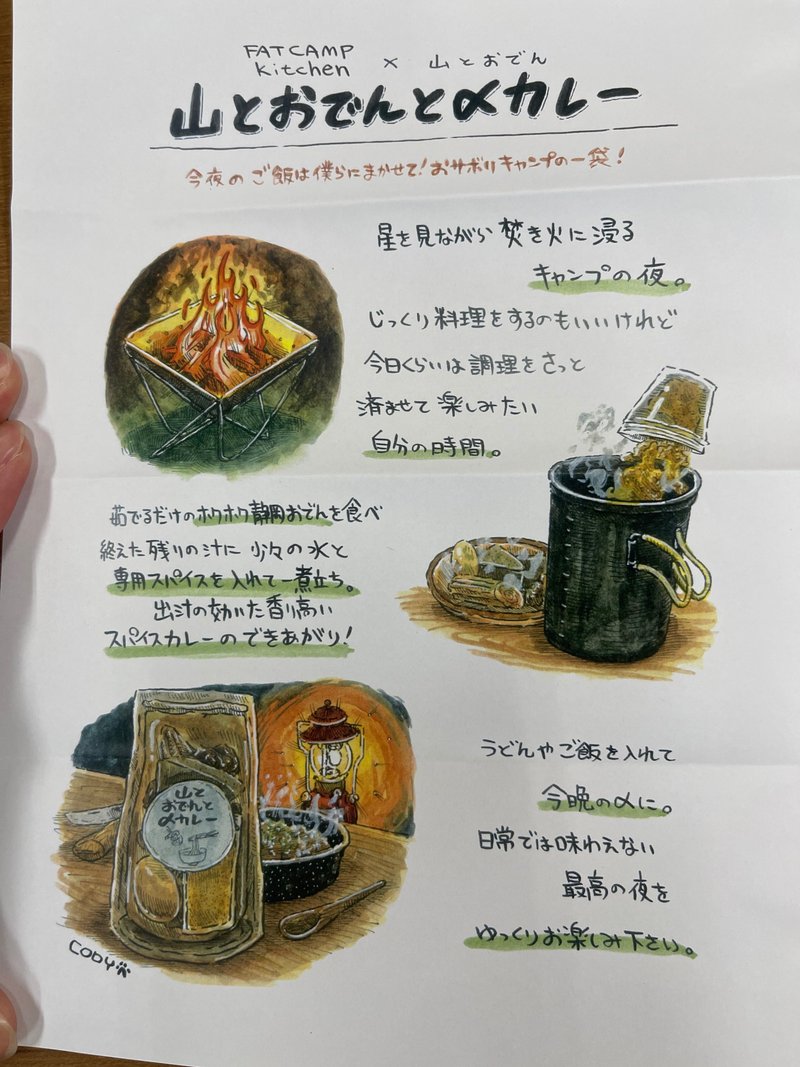 FATCAMP Kitchen × 山とおでん
山とおでんと〆カレー
今夜のご飯は僕らにまかせて!おサボりキャンプの一袋!
星を見ながら焚き火に浸る
キャンプの夜。
じっくり料理をするのもいいけれど
今日くらいは調理をさっと
済ませて楽しみたい
自分の時間。
茹でるだけのホクホク静岡おでんを食べ
終えた残りの汁に少々の水と
専用スパイスを入れて一煮立ち。
出汁の効いた香り高い
スパイスカレーのできあがり!
山と
おでんと
〆カレー
CODY
うどんやご飯を入れて
今晩の〆に。
日常では味わえない
最高の夜を
ゆっくりお楽しみ下さい。